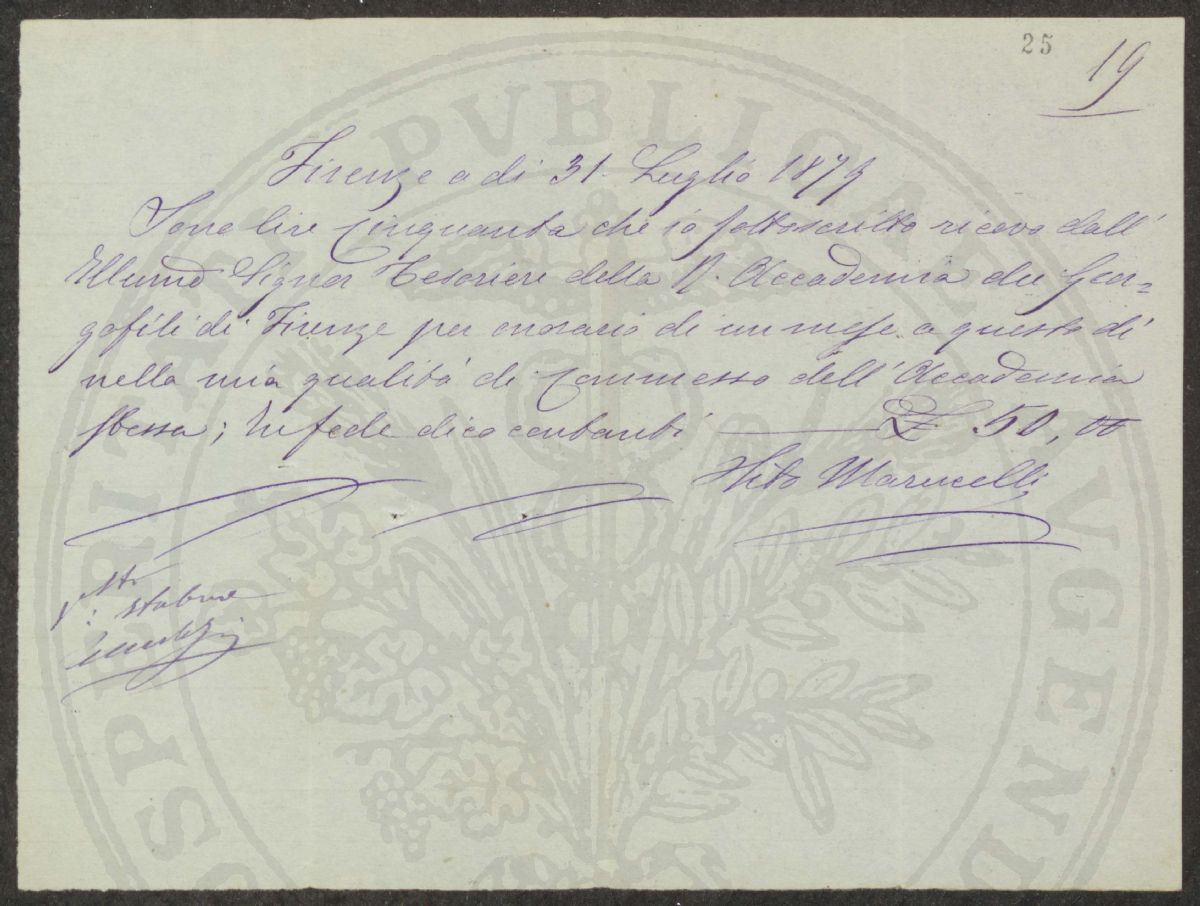 25
19
Firenze a di 31. Luglio 1879
Sono lire Cinquanta che io sottoscritto ricevo dall'
Illumo Signor Tesoriere della R. Accademia dei Geor=
gofili di Firenze per onorario di un mese a questo di
nella mia qualità di Commesso dell'Accademia
stessa; In fede dico contanti ——— £ 50,00
Vito Marucelli
PROSPERITATI PVBLICAE AVGENDAE